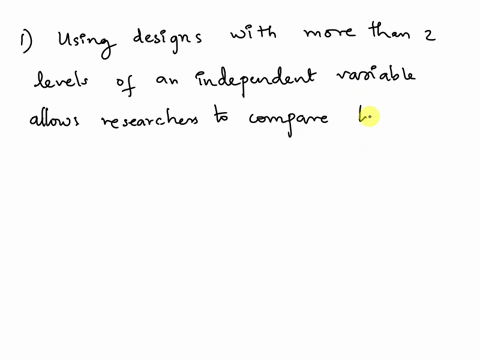 1) Using designs with more than 2
levels of an independent variable
allows researchers to compare